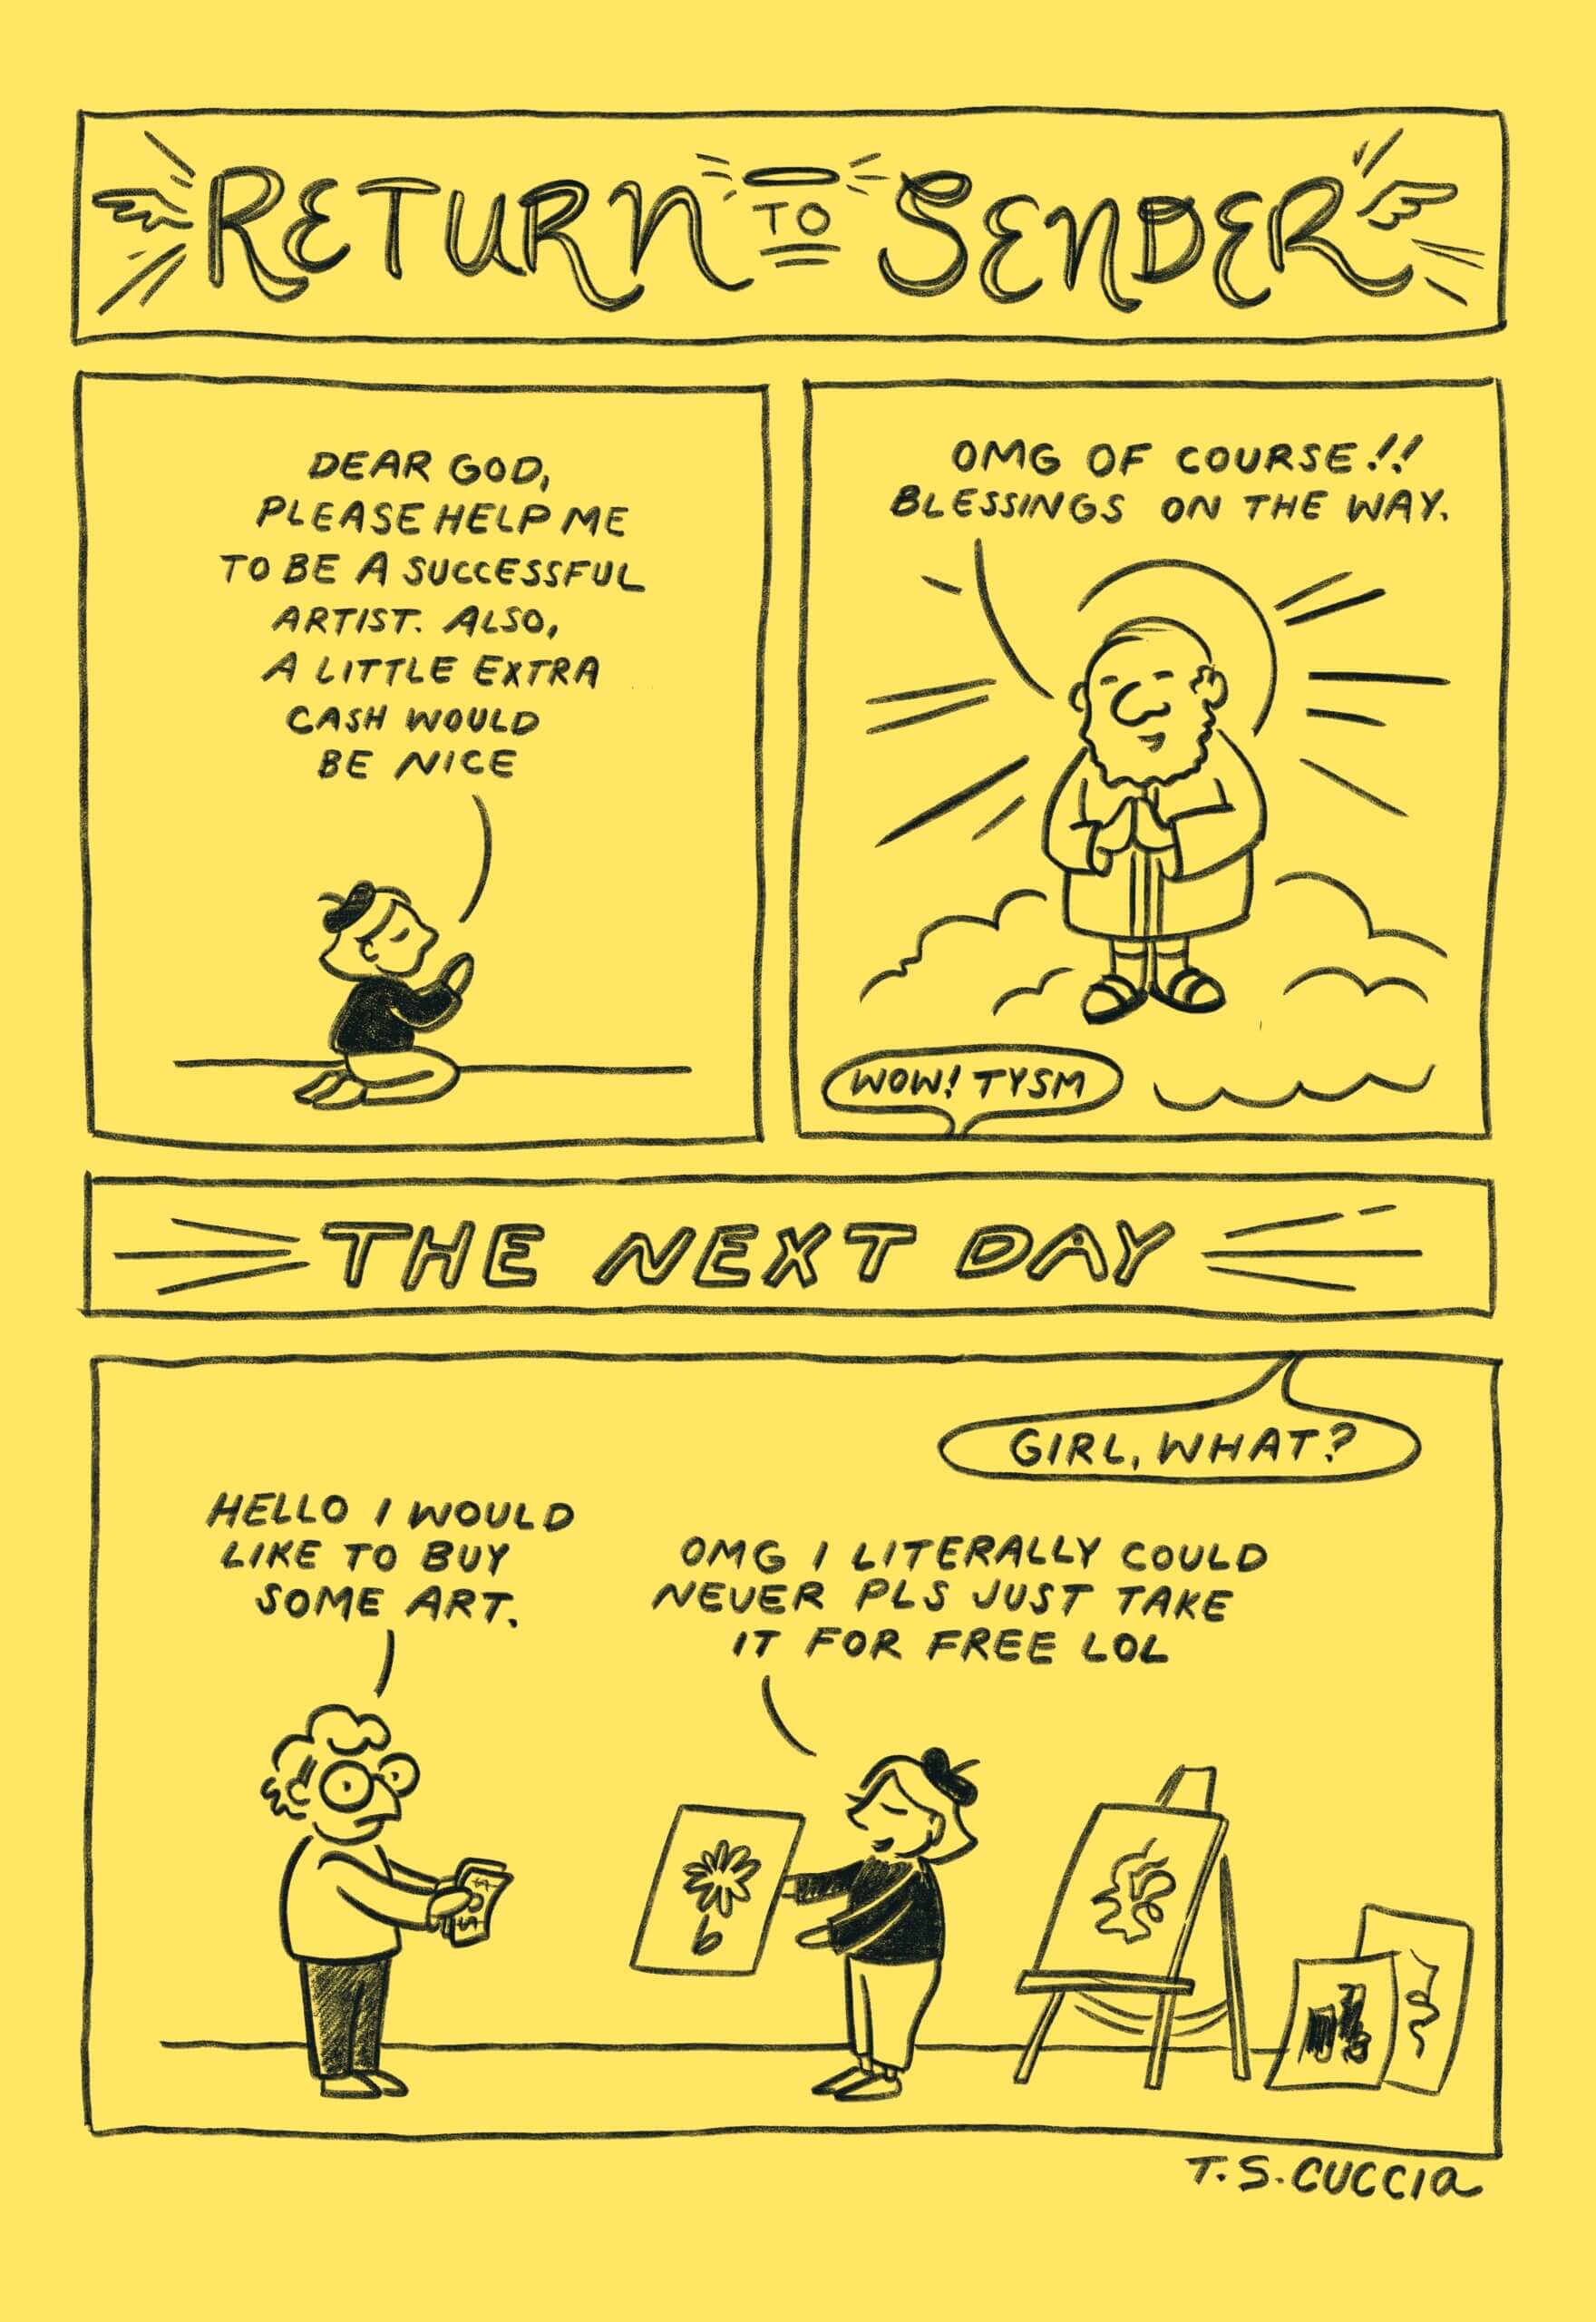 RETURN TO SENDER
DEAR GOD,
PLEASE HELP ME
TO BE A SUCCESSFUL
ARTIST. ALSO,
A LITTLE EXTRA
CASH WOULD
BE NICE
OMG OF COURSE!!
BLESSINGS ON THE WAY.
WOW! TYSM
THE NEXT DAY
GIRL, WHAT?
HELLO I WOULD
LIKE TO BUY
SOME ART.
OMG I LITERALLY COULD
NEVER PLS JUST TAKE
IT FOR FREE LOL
T.S.CUCCIA